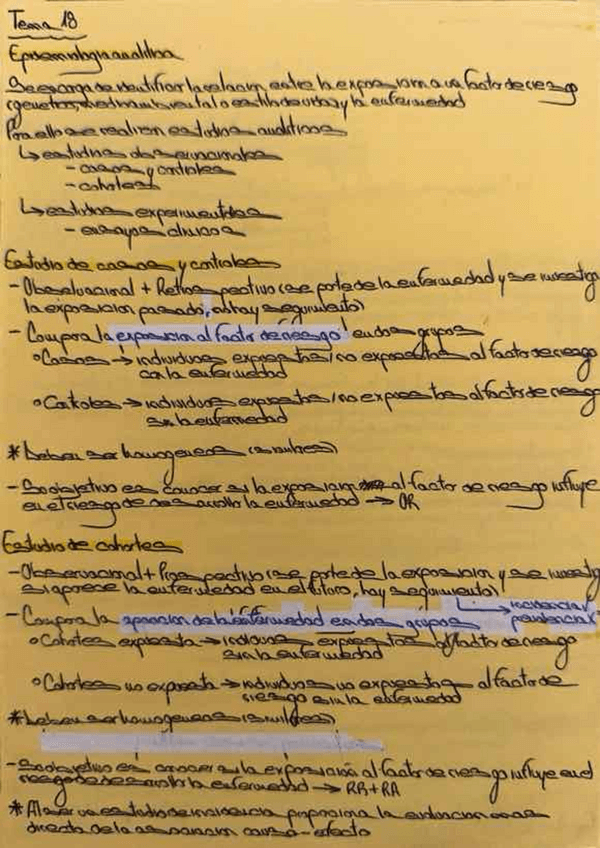 Tema 18
Epidemiología analítica
Se encarga de identificar la relación entre la exposición a un factor de riesgo
(genético, medioambiental o estilo de vida) y la enfermedad
Para ello se realizan estudios analíticos
↳ estudios observacionales
- casos y controles
- cohortes
↳ estudios experimentales
- ensayos clínicos
Estudio de casos y controles
- Observacional + Retrospectivo (se parte de la enfermedad y se investiga
la exposición pasada, no hay seguimiento)
- Compara la exposición al factor de riesgo en dos grupos
° Casos → individuos expuestos / no expuestos al factor de riesgo
con la enfermedad
° Controles → individuos expuestos / no expuestos al factor de riesgo
sin la enfermedad
* Deben ser homogéneos (similares)
- Su objetivo es conocer si la exposición al factor de riesgo influye
en el riesgo de desarrollar la enfermedad → OR
Estudio de cohortes
- Observacional + Prospectivo (se parte de la exposición y se investiga
si aparece la enfermedad en el futuro, hay seguimiento)
- Compara la aparición de la enfermedad en dos grupos ↳ incidencia
° Cohortes expuesta → individuos expuestos al factor de riesgo
sin la enfermedad
° Cohortes no expuesta → individuos no expuestos al factor de
riesgo sin la enfermedad
* Deben ser homogéneos (similares)
- Su objetivo es conocer si la exposición al factor de riesgo influye en el
riesgo de desarrollar la enfermedad → RR + RA
* Al ser un estudio de incidencia proporciona la evaluación más
directa de la asociación causa-efecto